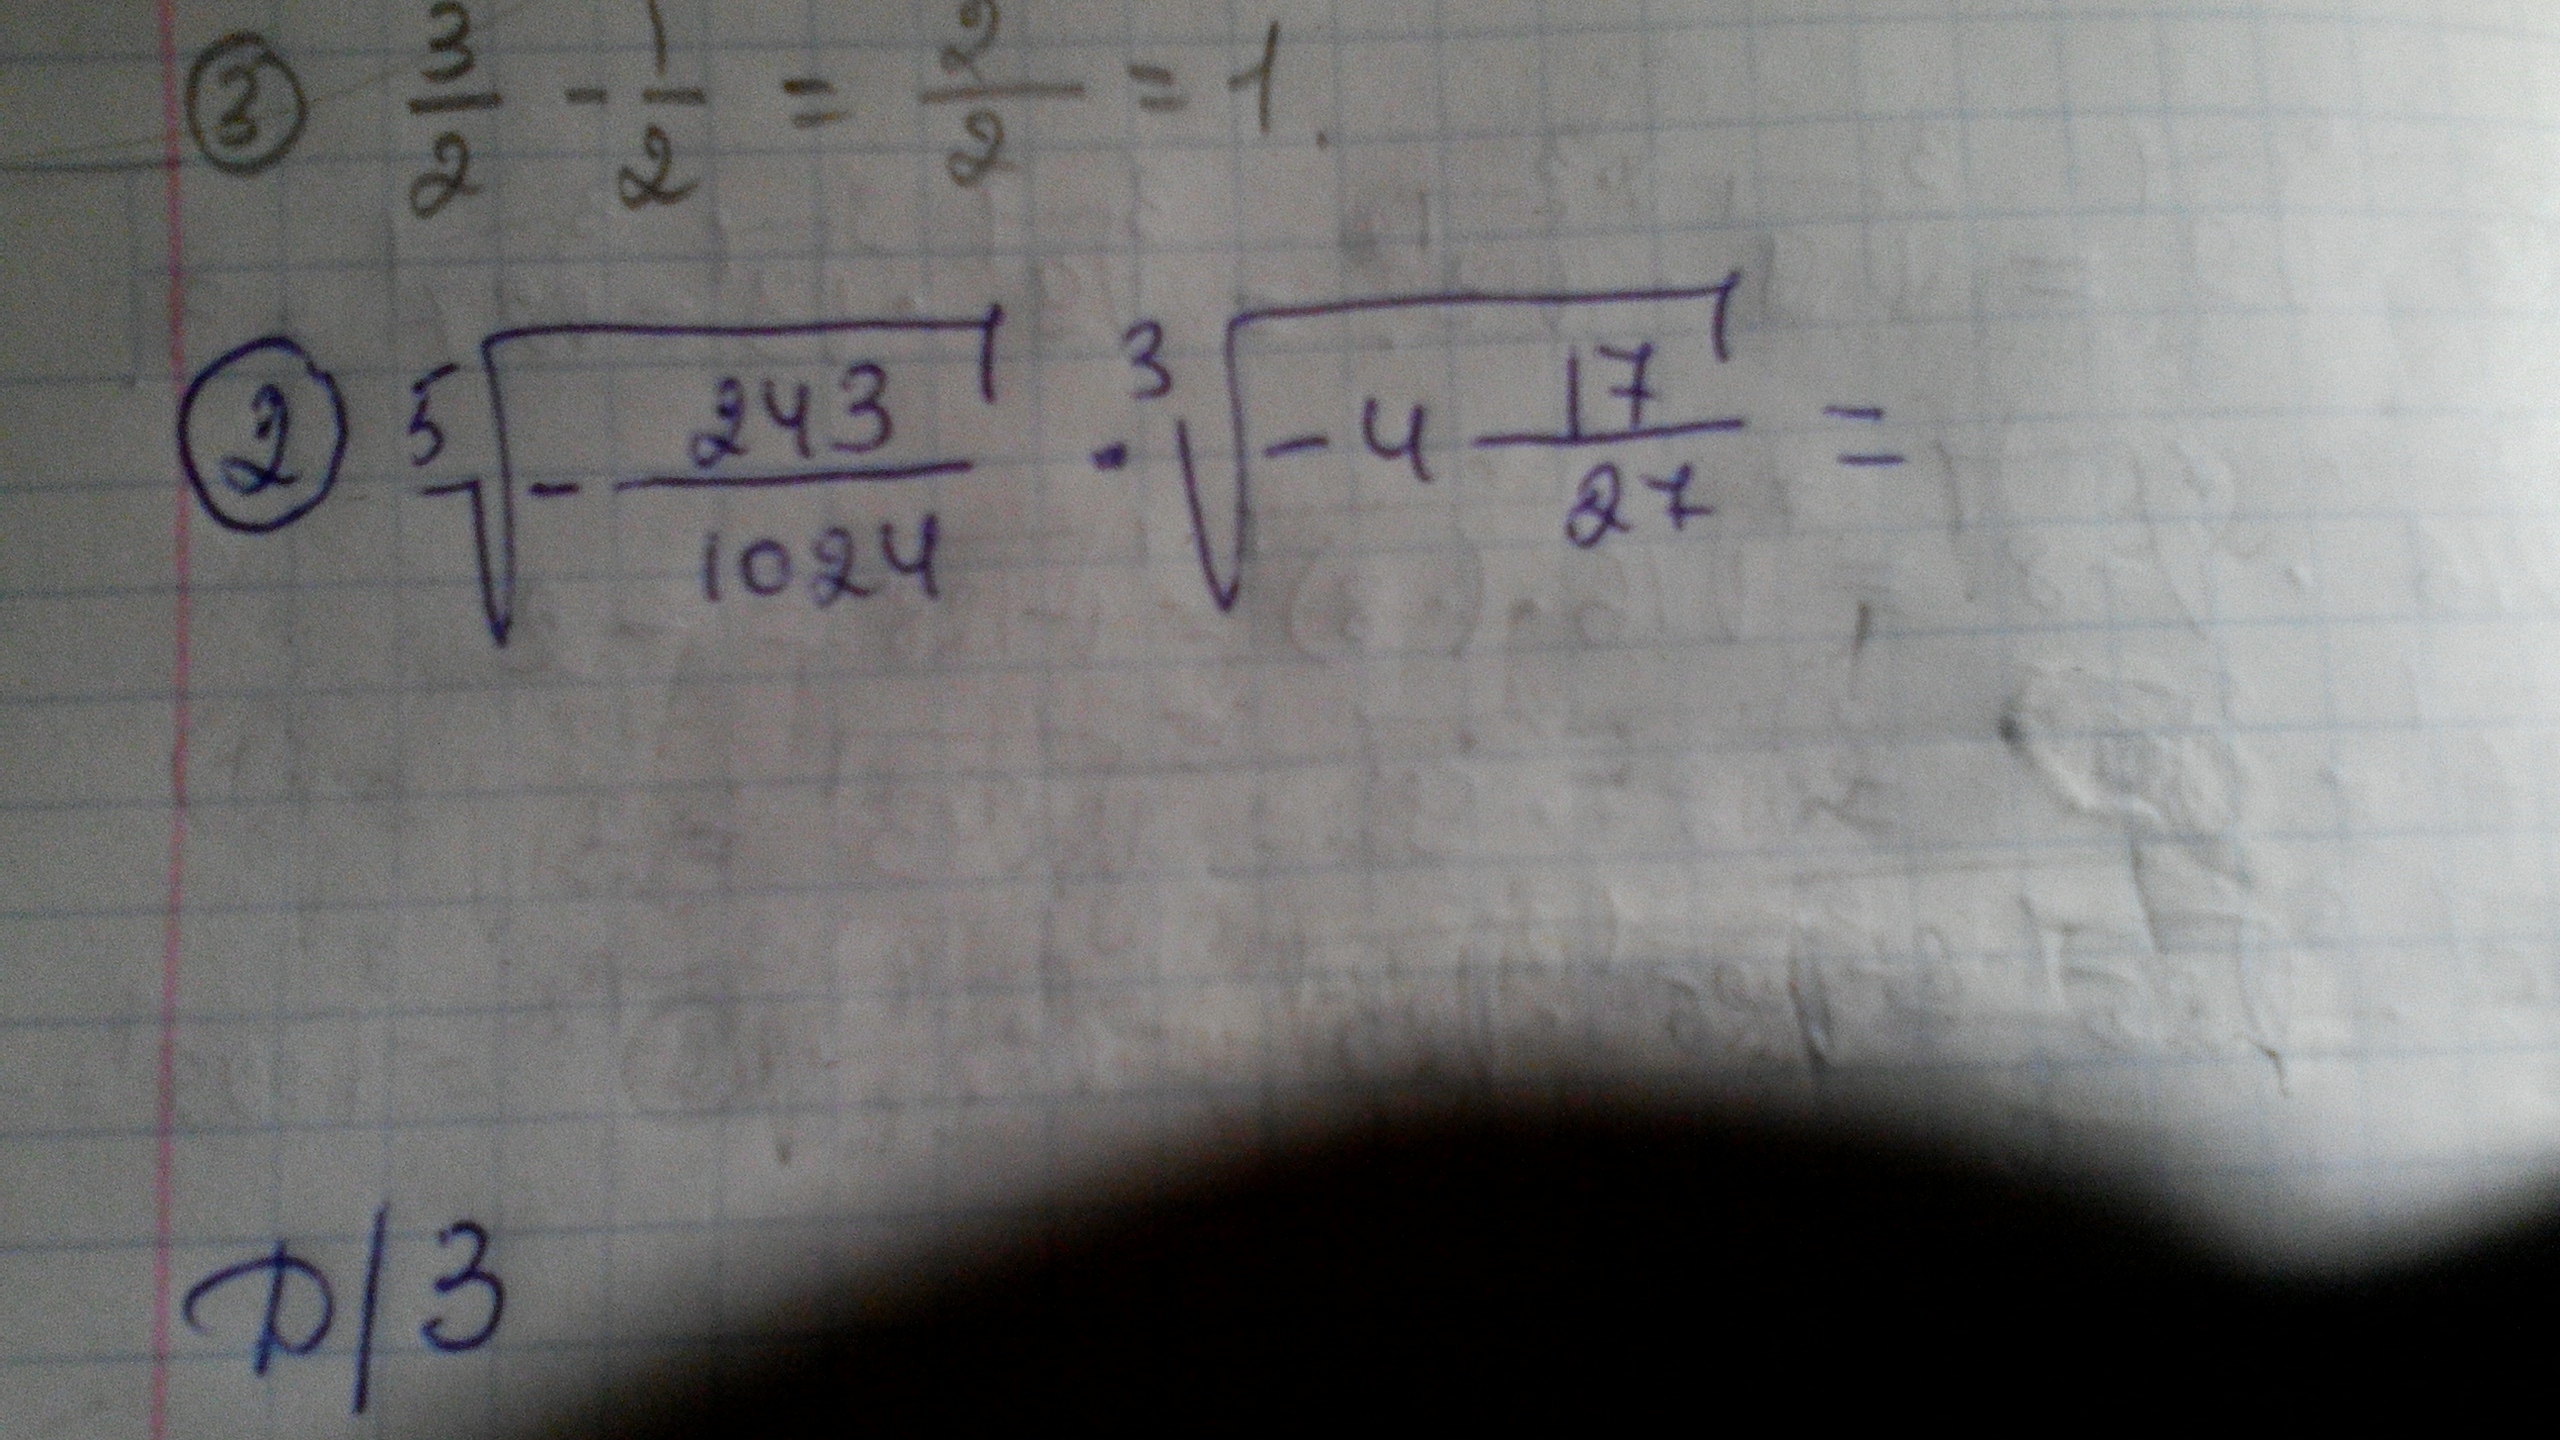 ③ 3/2 - 1/2 = 2/2 = 1.
② ⁵√(- 243/1024) · ³√(-4 17/27) =
Д/З